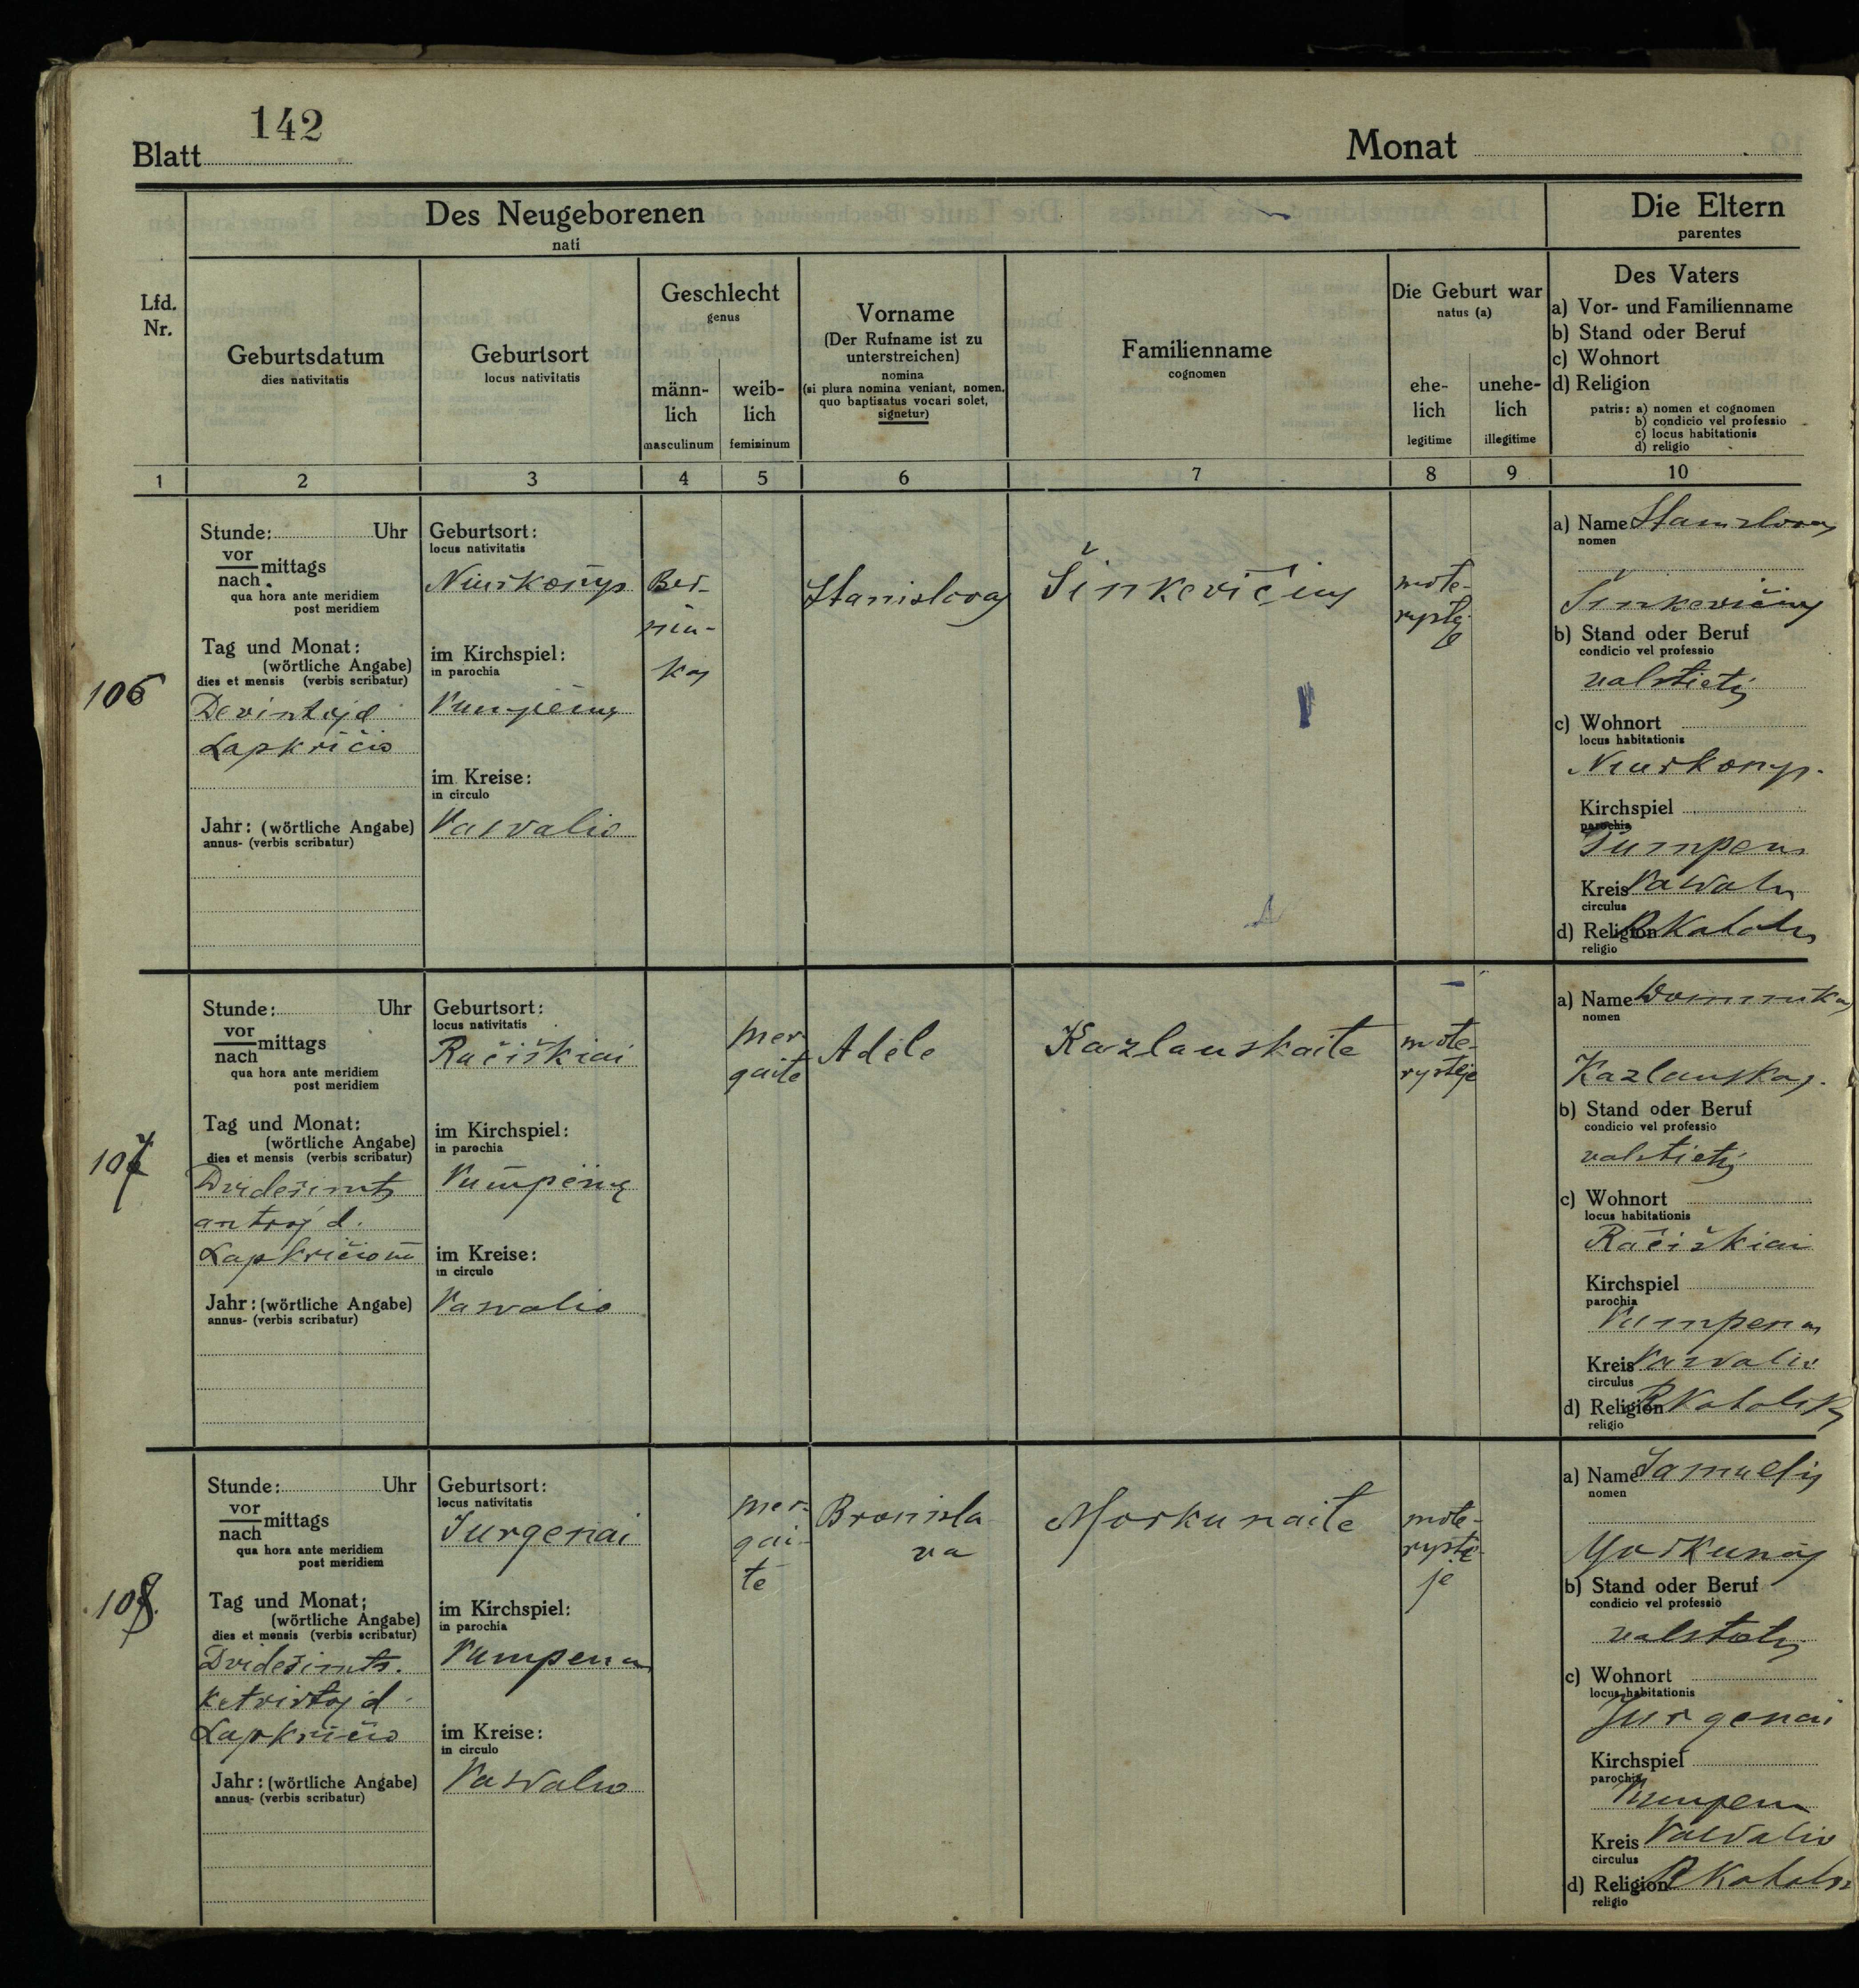 142
Blatt
Monat
Des Neugeborenen
nati
Die Eltern
parentes
Lfd.
Nr.
Geburtsdatum
dies nativitatis
Geburtsort
locus nativitatis
Geschlecht
genus
männ-
lich
masculinum
weib-
lich
femininum
Vorname
(Der Rufname ist zu
unterstreichen)
nomina
(si plura nomina veniant, nomen,
quo baptisatus vocari solet,
signetur)
Familienname
cognomen
Die Geburt war
natus (a)
ehe-
lich
legitime
unehe-
lich
illegitime
Des Vaters
a) Vor- und Familienname
b) Stand oder Beruf
c) Wohnort
d) Religion
patris: a) nomen et cognomen
b) condicio vel professio
c) locus habitationis
d) religio
1 2 3 4 5 6 7 8 9 10
106
Stunde: Uhr
vor
nach mittags
qua hora ante meridiem
post meridiem
Tag und Monat:
(wörtliche Angabe)
dies et mensis (verbis scribatur)
Devintoj d
Lapkričio
Jahr: (wörtliche Angabe)
annus- (verbis scribatur)
Geburtsort:
locus nativitatis
im Kirchspiel:
in parochia
im Kreise:
in circulo
Ber-
niu-
kas
Stanislovas
Šinkevičius
mote-
rystėj
a) Name Stanislovas
nomen
Šinkevičius
b) Stand oder Beruf
condicio vel professio
valstietis
c) Wohnort
locus habitationis
Kirchspiel
parochia
Kreis
circulus
d) Religion
religio
107
Stunde: Uhr
vor
nach mittags
qua hora ante meridiem
post meridiem
Tag und Monat:
(wörtliche Angabe)
dies et mensis (verbis scribatur)
Dvidešimts
antroj d.
Jahr: (wörtliche Angabe)
annus- (verbis scribatur)
Geburtsort:
locus nativitatis
Račiškiai
im Kirchspiel:
in parochia
im Kreise:
in circulo
Mer
gaitė
Adėlė
Kazlauskaitė
mote-
rystėje
a) Name
nomen
Kazlauskas
b) Stand oder Beruf
condicio vel professio
valstietis
c) Wohnort
locus habitationis
Račiškiai
Kirchspiel
parochia
Kreis
circulus
d) Religion R Kataliks
religio
108
Stunde: Uhr
vor
nach mittags
qua hora ante meridiem
post meridiem
Tag und Monat:
(wörtliche Angabe)
dies et mensis (verbis scribatur)
Dvidešimts.
ketvirtoj d.
Lapkričio
Jahr: (wörtliche Angabe)
annus- (verbis scribatur)
Geburtsort:
locus nativitatis
Jurgenai
im Kirchspiel:
in parochia
im Kreise:
in circulo
Mer-
gai-
tė
Bronisla
va
Morkunaitė
mote-
rystė-
je
a) Name
nomen
Morkunas
b) Stand oder Beruf
condicio vel professio
valstietis
c) Wohnort
locus habitationis
Jurgenai
Kirchspiel
parochia
Kreis
circulus
d) Religion
religio